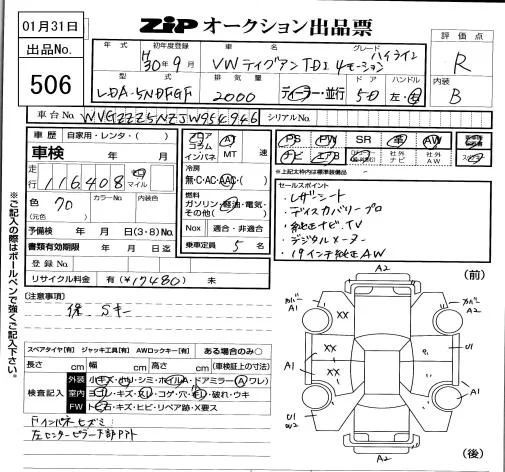 01月31日
ZIP オークション出品票
出品No.
506
年式 初年度登録 車名 グレード
H30年9月 VWティグアンTDI 4モーション ハイライン
評価点
R
型式 排気量 ドア ハンドル
LDA-5NDFGF 2000 ディーラー・並行 5D 左・右
内装
B
車台No. WVGZZZ5NZJW954946 シリアルNo.
車歴 自家用・レンタ( )
車検 年 月
走行 116,408 マイル
色 70 カラーNo. 内装色
(元色)
予備検 年 月 日(3・8)No.
書類有効期限 年 月 日迄
登録No.
リサイクル料金 有(¥17480) 未
フロア コラム インパネ AT MT 速
冷房
無・C・AC・AAC・( )
燃料
ガソリン・軽油・電気・その他( )
Nox 適合・非適合
乗車定員 5 名
PS PW SR 革 AW
ナビ エアB 社外ナビ 社外AW
*上記太枠内は標準装備品
セールスポイント
・レザーシート
・ディスカバリープロ
・純正ナビ.TV
・デジタルメーター
・19インチ純正AW
※ご記入の際はボールペンで強くご記入下さい。
[注意事項]
保、Sキー
スペアタイヤ[有] ジャッキ工具[有] AWロックキー[有] ある場合のみ○
長さ cm 幅 cm 高さ cm (車検証上の寸法)
検査記入
外装 小キズ・小凹・シミ・ホイルA・ドアミラー(Aワレ)
室内 ヨゴレ・キズ・スレ・コゲ・穴・破れ・ウキ
FW トビ石・キズ・ヒビ・リペア跡・X要ス
左センターピラー下部アト
(前)
A2
カバーA1
カバーA2
XX
XX
U1
A1
A1
U1
A2
(後)